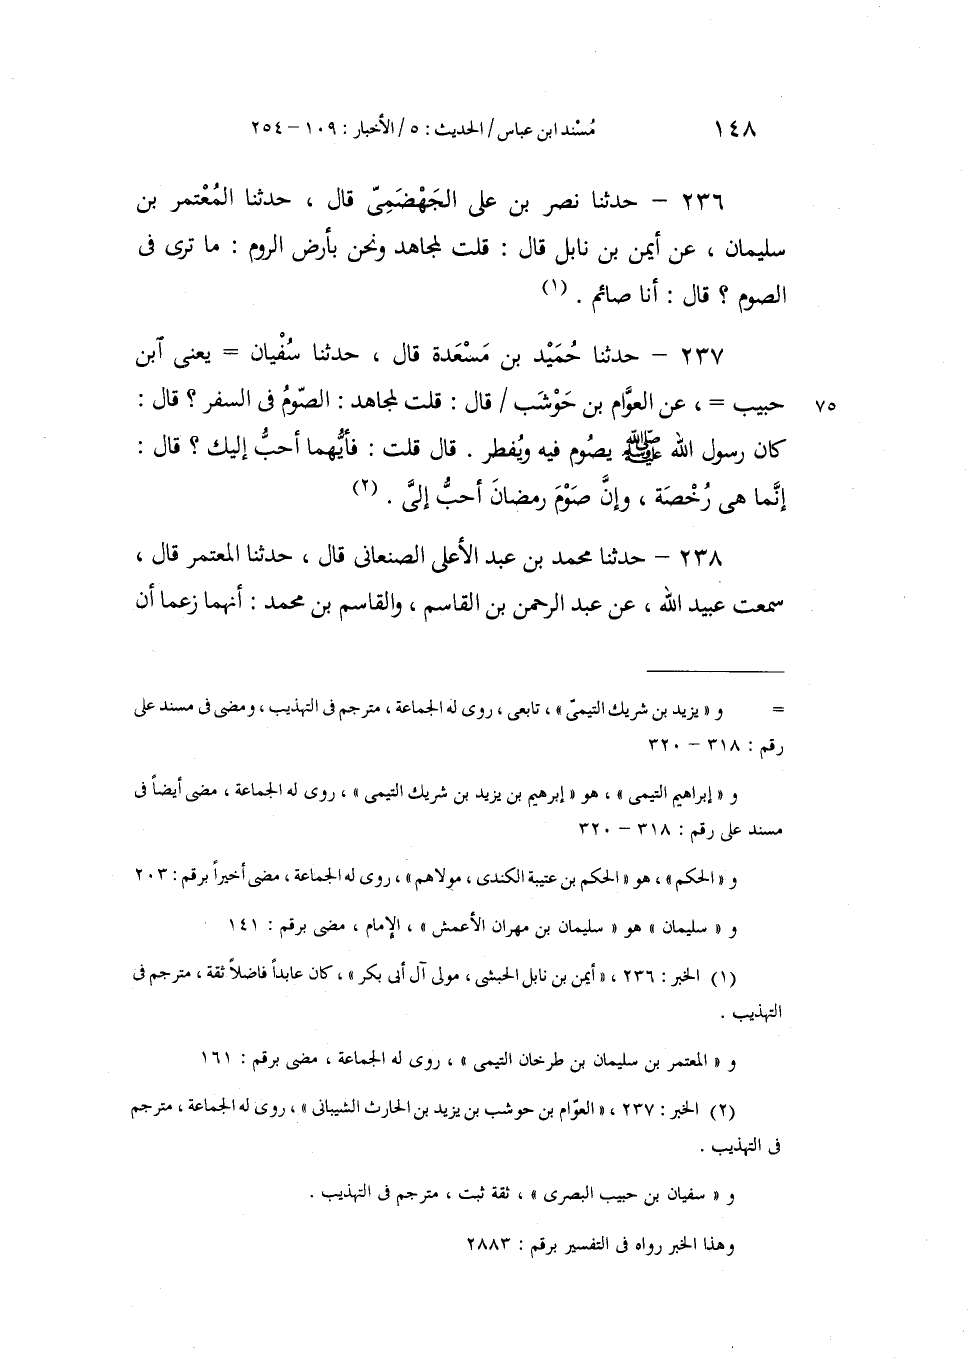 ١٤٨ مُسْند ابن عباس / الحديث : ٥ / الأخبار : ١٠٩ – ٢٥٤
٢٣٦ – حدثنا نصر بن على الجَهْضَمِىّ قال ، حدثنا المُعْتمر بن
سليمان ، عن أيمن بن نابل قال : قلت لمجاهد ونحن بأرض الروم : ما ترى فى
الصوم ؟ قال : أنا صائم . (١)
٢٣٧ – حدثنا حُمَيْد بن مَسْعَدة قال ، حدثنا سُفْيان = يعنى آبن
٧٥ حبيب = ، عن العوَّام بن حَوْشَب / قال : قلت لمجاهد : الصّومُ فى السفر ؟ قال :
كان رسول الله ﷺ يصُوم فيه ويُفطر . قال قلت : فأيُّهما أحبُّ إليك ؟ قال :
إنَّما هى رُخْصَة ، وإنَّ صَوْمَ رمضانَ أحبُّ إلىَّ . (٢)
٢٣٨ – حدثنا محمد بن عبد الأعلى الصنعانى قال ، حدثنا المعتمر قال ،
سمعت عبيد الله ، عن عبد الرحمن بن القاسم ، والقاسم بن محمد : أنهما زعما أن
= و « يزيد بن شريك التيمىّ » ، تابعى ، روى له الجماعة ، مترجم فى التهذيب ، ومضى فى مسند على
رقم : ٣١٨ – ٣٢٠
و « إبراهيم التيمى » ، هو « إبرهيم بن يزيد بن شريك التيمى » ، روى له الجماعة ، مضى أيضاً فى
مسند على رقم : ٣١٨ – ٣٢٠
و « الحكم » ، هو « الحكم بن عتيبة الكندى ، مولاهم » ، روى له الجماعة ، مضى أخيراً برقم : ٢٠٣
و « سليمان » هو « سليمان بن مهران الأعمش » ، الإمام ، مضى برقم : ١٤١
(١) الخبر : ٢٣٦ ، « أيمن بن نابل الحبشى ، مولى آل أبى بكر » ، كان عابداً فاضلاً ثقة ، مترجم فى
التهذيب .
و « المعتمر بن سليمان بن طرخان التيمى » ، روى له الجماعة ، مضى برقم : ١٦١
(٢) الخبر : ٢٣٧ ، « العوّام بن حوشب بن يزيد بن الحارث الشيبانى » ، روى له الجماعة ، مترجم
فى التهذيب .
و « سفيان بن حبيب البصرى » ، ثقة ثبت ، مترجم فى التهذيب .
وهذا الخبر رواه فى التفسير برقم : ٢٨٨٣